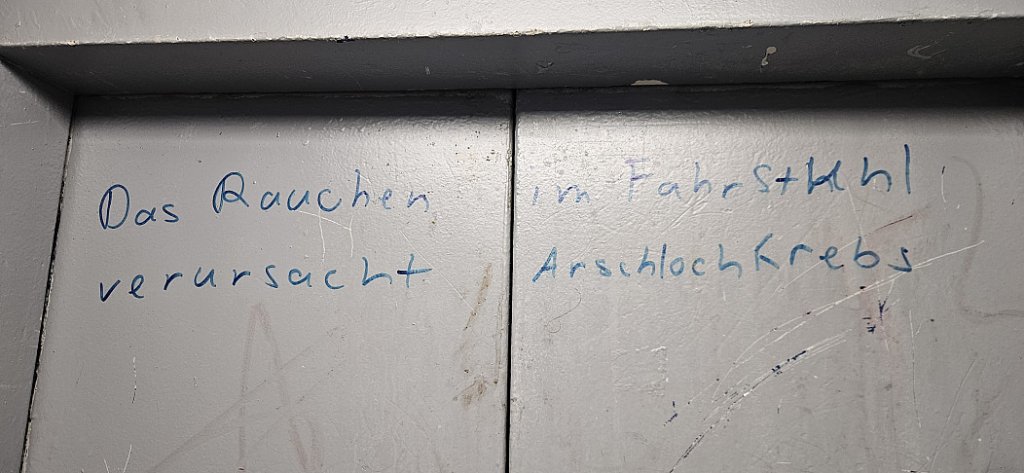 Das Rauchen im Fahrstuhl
verursacht Arschlochkrebs